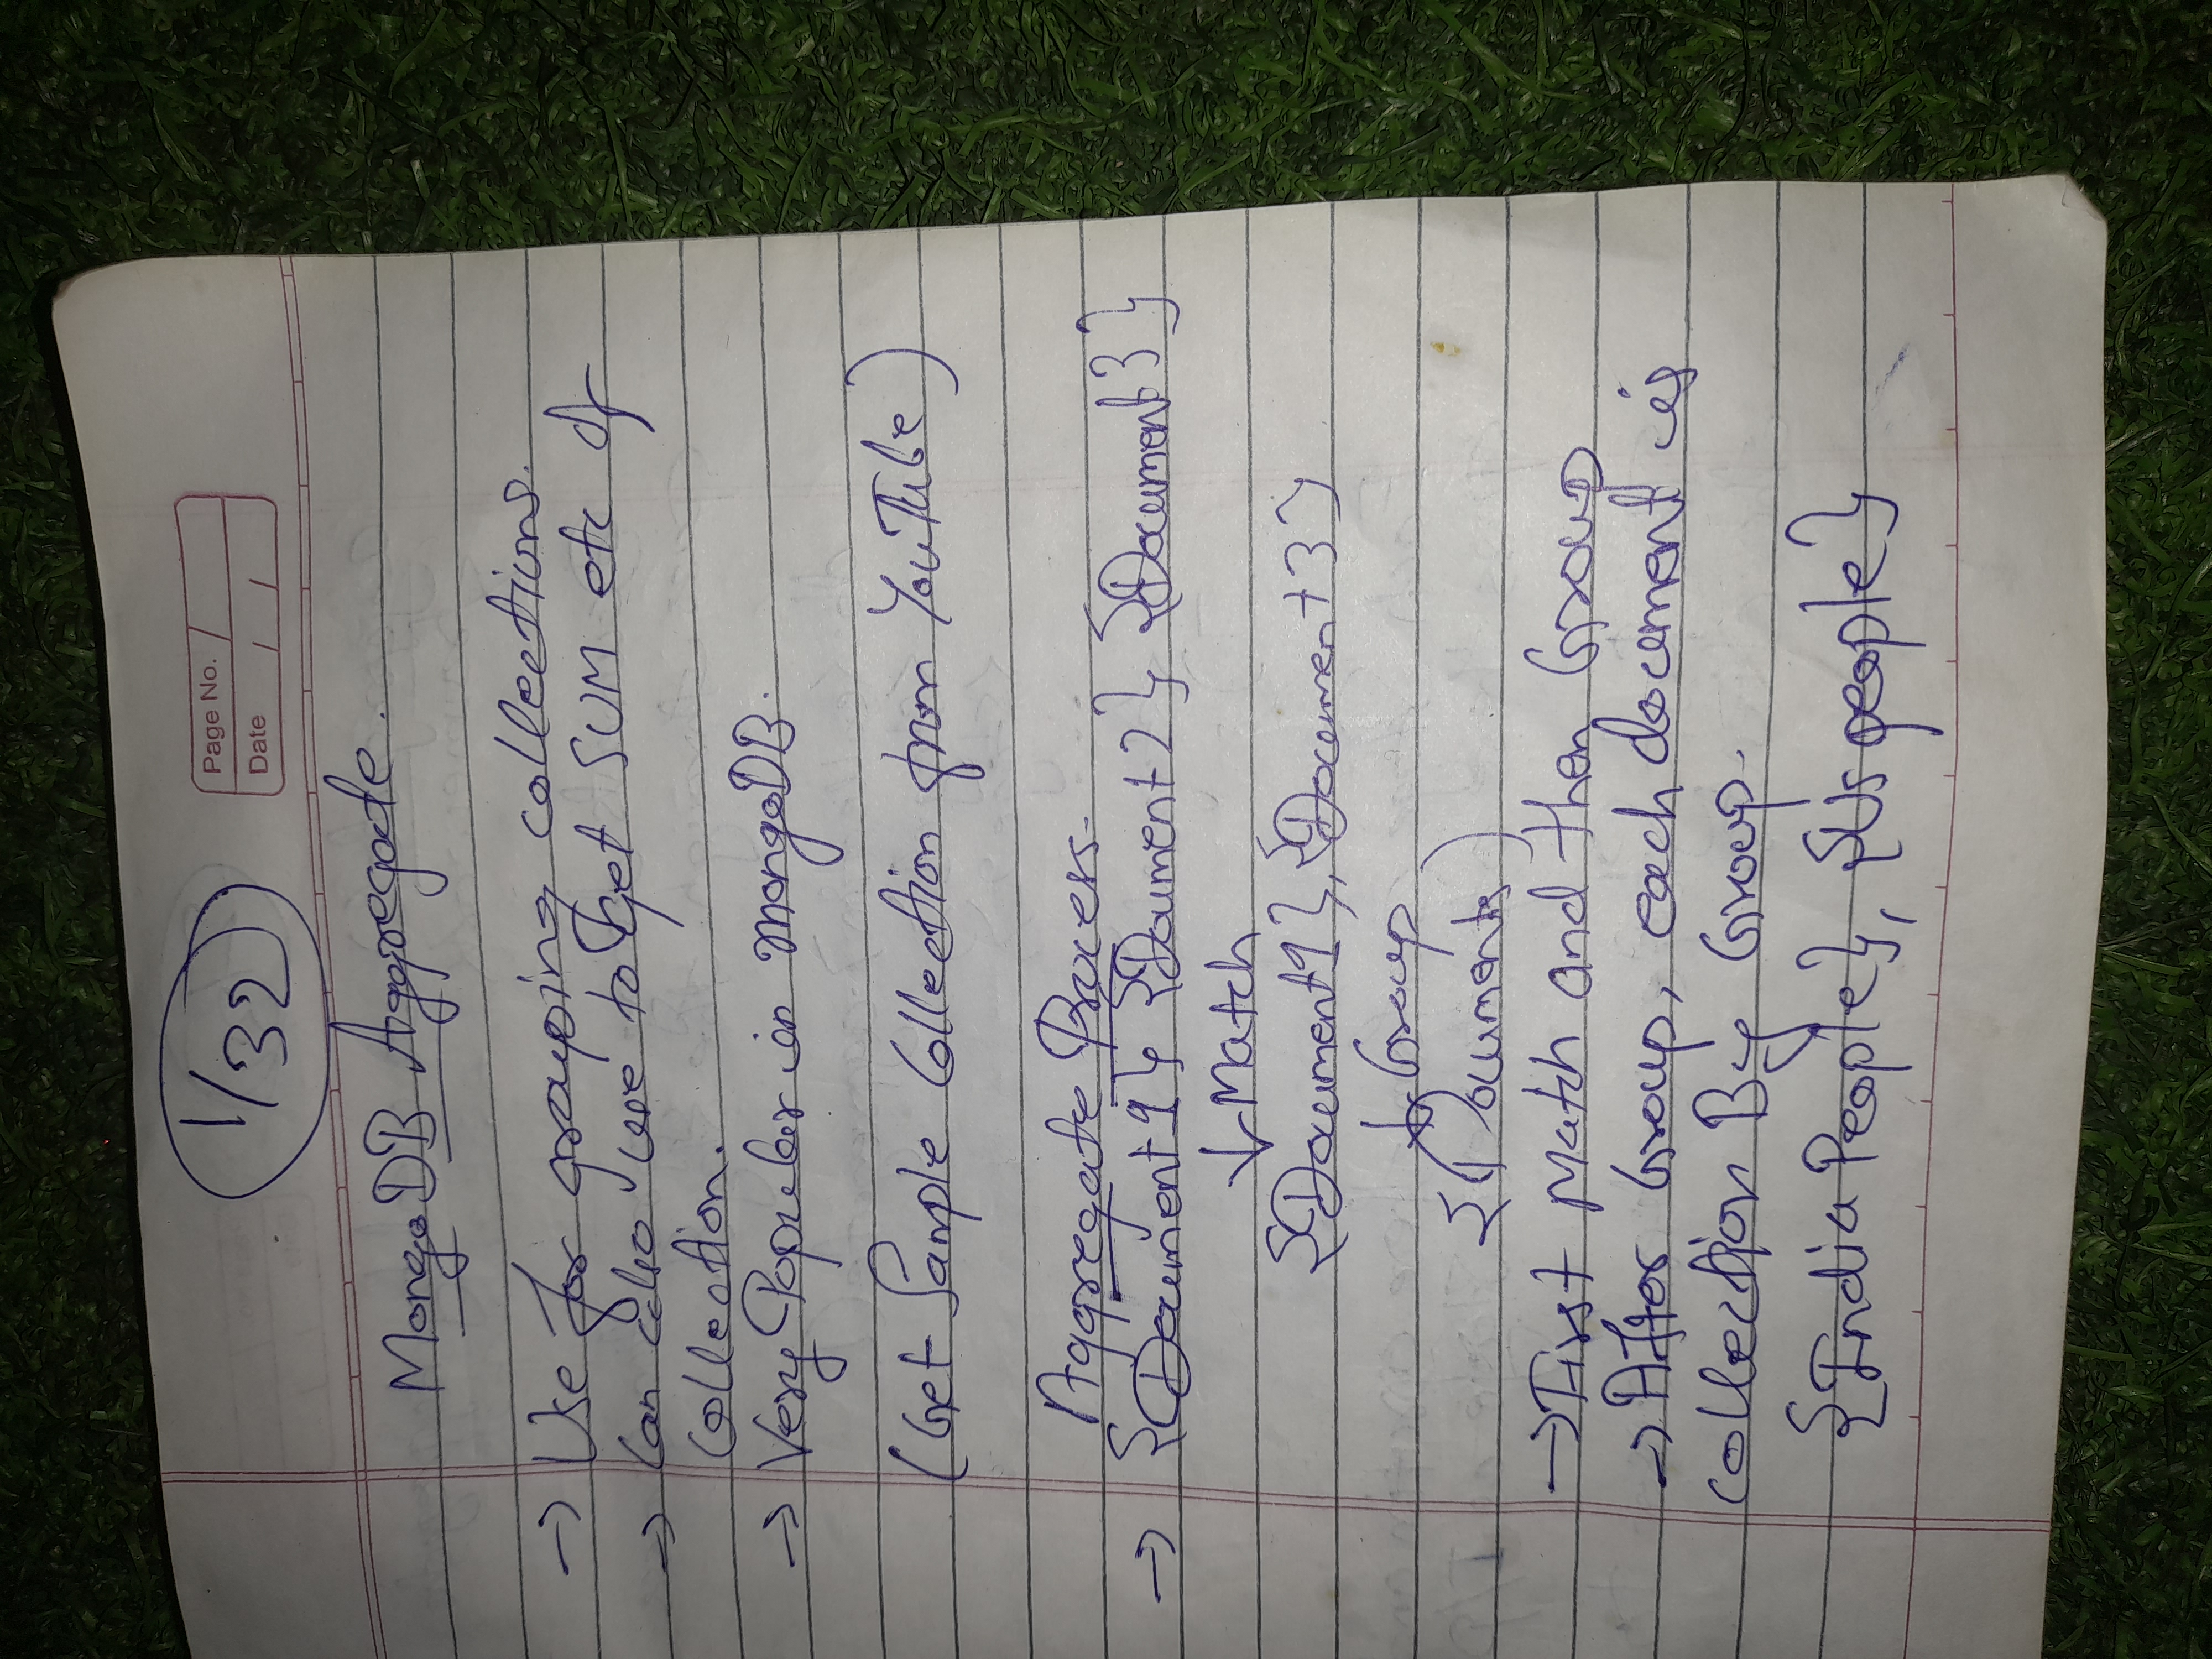 1/32
Page No.
Date / /
MongoDB Aggregate.
→ Use for grouping collections.
→ Can also use to Get SUM etc of
Collection.
→ Very Popular in mongoDB.
(Get Sample Collection from YouTube)
Aggregate Process
→ {Document 1} {Doument 2} {Document 3}
↓ Match
{Document 1}, {Document 3}
↓ Group
{Documents)
→ First Match and then Group
→ After Group, each document is
collection By Group.
{India People}, {Us people}